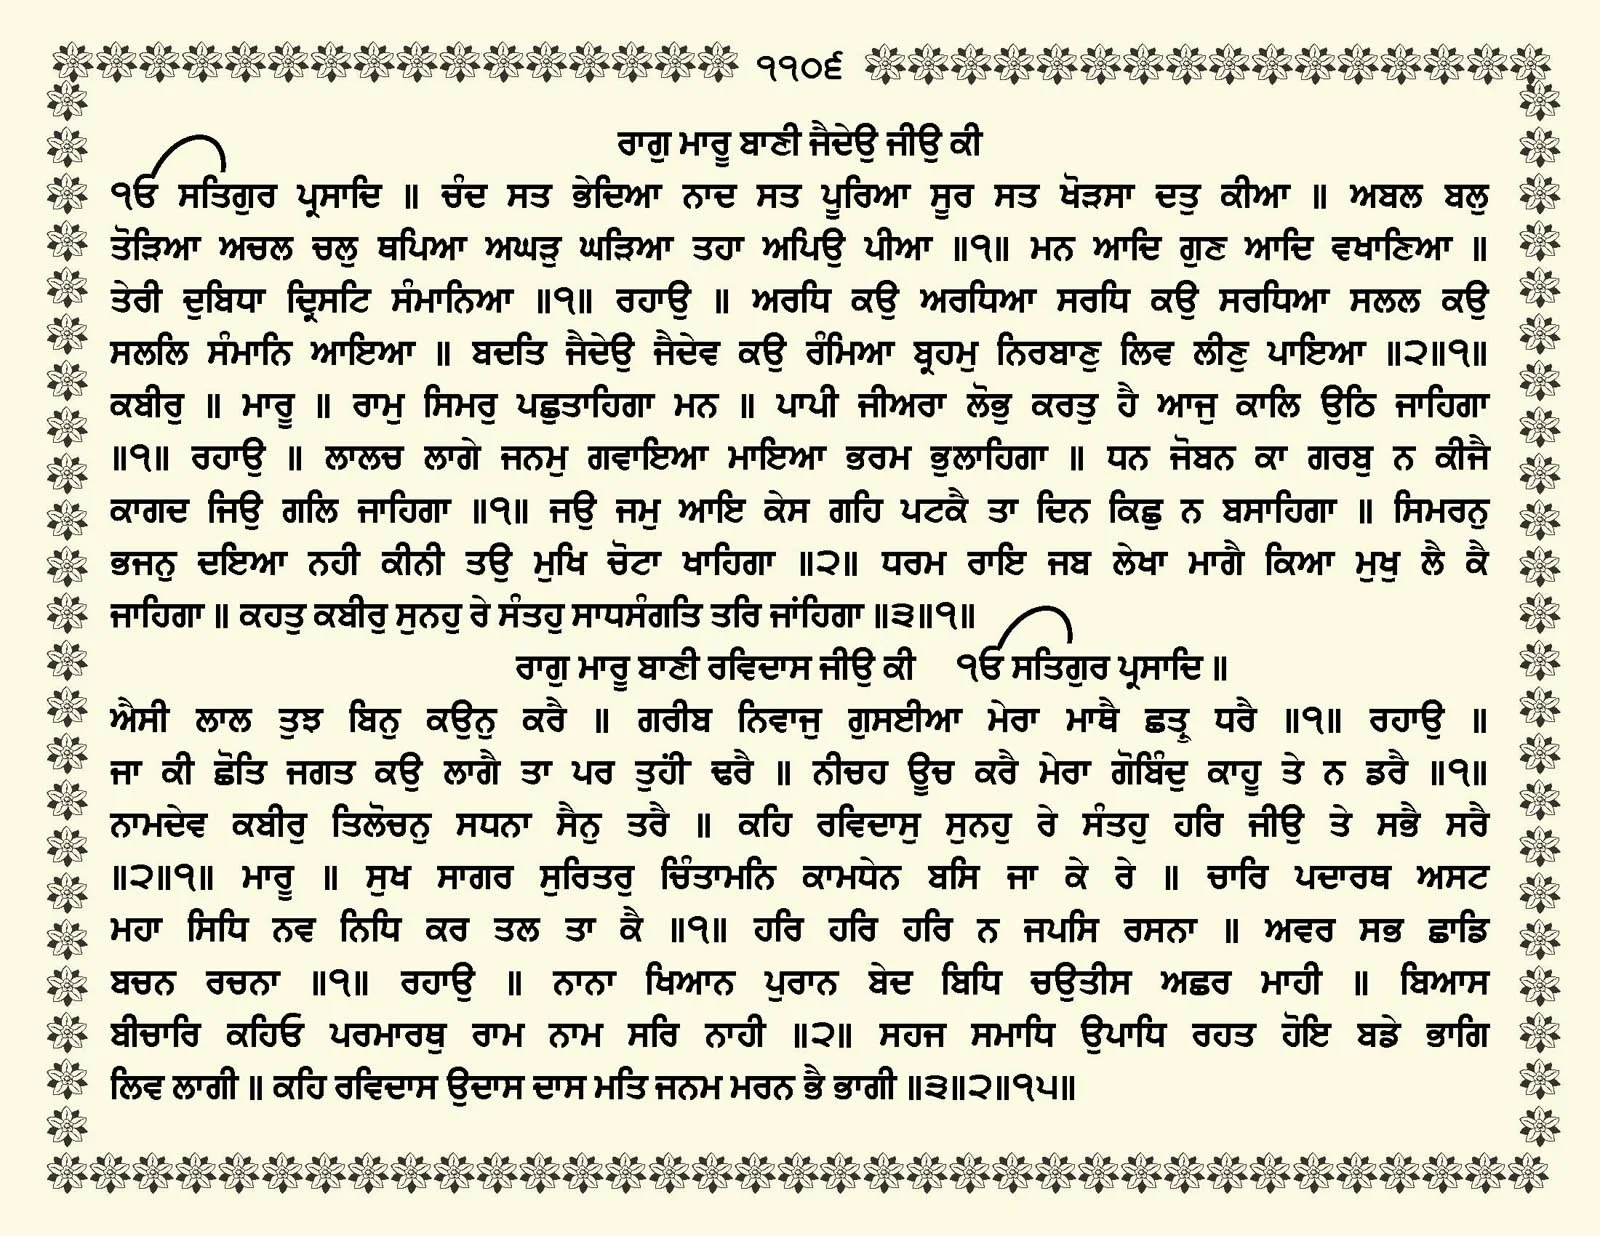 ੧੧੦੬
ਰਾਗੁ ਮਾਰੂ ਬਾਣੀ ਜੈਦੇਉ ਜੀਉ ਕੀ
ੴ ਸਤਿਗੁਰ ਪ੍ਰਸਾਦਿ ॥ ਚੰਦ ਸਤ ਭੇਦਿਆ ਨਾਦ ਸਤ ਪੂਰਿਆ ਸੂਰ ਸਤ ਖੋੜਸਾ ਦਤੁ ਕੀਆ ॥ ਅਬਲ ਬਲੁ
ਤੋੜਿਆ ਅਚਲ ਚਲੁ ਥਪਿਆ ਅਘੜੁ ਘੜਿਆ ਤਹਾ ਅਪਿਉ ਪੀਆ ॥੧॥ ਮਨ ਆਦਿ ਗੁਣ ਆਦਿ ਵਖਾਣਿਆ ॥
ਤੇਰੀ ਦੁਬਿਧਾ ਦ੍ਰਿਸਟਿ ਸੰਮਾਨਿਆ ॥੧॥ ਰਹਾਉ ॥ ਅਰਧਿ ਕਉ ਅਰਧਿਆ ਸਰਧਿ ਕਉ ਸਰਧਿਆ ਸਲਲ ਕਉ
ਸਲਲਿ ਸੰਮਾਨਿ ਆਇਆ ॥ ਬਦਤਿ ਜੈਦੇਉ ਜੈਦੇਵ ਕਉ ਰੰਮਿਆ ਬ੍ਰਹਮੁ ਨਿਰਬਾਣੁ ਲਿਵ ਲੀਣੁ ਪਾਇਆ ॥੨॥੧॥
ਕਬੀਰੁ ॥ ਮਾਰੂ ॥ ਰਾਮੁ ਸਿਮਰੁ ਪਛੁਤਾਹਿਗਾ ਮਨ ॥ ਪਾਪੀ ਜੀਅਰਾ ਲੋਭੁ ਕਰਤੁ ਹੈ ਆਜੁ ਕਾਲਿ ਉਠਿ ਜਾਹਿਗਾ
॥੧॥ ਰਹਾਉ ॥ ਲਾਲਚ ਲਾਗੇ ਜਨਮੁ ਗਵਾਇਆ ਮਾਇਆ ਭਰਮ ਭੁਲਾਹਿਗਾ ॥ ਧਨ ਜੋਬਨ ਕਾ ਗਰਬੁ ਨ ਕੀਜੈ
ਕਾਗਦ ਜਿਉ ਗਲਿ ਜਾਹਿਗਾ ॥੧॥ ਜਉ ਜਮੁ ਆਇ ਕੇਸ ਗਹਿ ਪਟਕੈ ਤਾ ਦਿਨ ਕਿਛੁ ਨ ਬਸਾਹਿਗਾ ॥ ਸਿਮਰਨੁ
ਭਜਨੁ ਦਇਆ ਨਹੀ ਕੀਨੀ ਤਉ ਮੁਖਿ ਚੋਟਾ ਖਾਹਿਗਾ ॥੨॥ ਧਰਮ ਰਾਇ ਜਬ ਲੇਖਾ ਮਾਗੈ ਕਿਆ ਮੁਖੁ ਲੈ ਕੈ
ਜਾਹਿਗਾ ॥ ਕਹਤੁ ਕਬੀਰੁ ਸੁਨਹੁ ਰੇ ਸੰਤਹੁ ਸਾਧਸੰਗਤਿ ਤਰਿ ਜਾਂਹਿਗਾ ॥੩॥੧॥
ਰਾਗੁ ਮਾਰੂ ਬਾਣੀ ਰਵਿਦਾਸ ਜੀਉ ਕੀ ੴ ਸਤਿਗੁਰ ਪ੍ਰਸਾਦਿ ॥
ਐਸੀ ਲਾਲ ਤੁਝ ਬਿਨੁ ਕਉਨੁ ਕਰੈ ॥ ਗਰੀਬ ਨਿਵਾਜੁ ਗੁਸਈਆ ਮੇਰਾ ਮਾਥੈ ਛਤ੍ਰੁ ਧਰੈ ॥੧॥ ਰਹਾਉ ॥
ਜਾ ਕੀ ਛੋਤਿ ਜਗਤ ਕਉ ਲਾਗੈ ਤਾ ਪਰ ਤੁਹੀਂ ਢਰੈ ॥ ਨੀਚਹ ਊਚ ਕਰੈ ਮੇਰਾ ਗੋਬਿੰਦੁ ਕਾਹੂ ਤੇ ਨ ਡਰੈ ॥੧॥
ਨਾਮਦੇਵ ਕਬੀਰੁ ਤਿਲੋਚਨੁ ਸਧਨਾ ਸੈਨੁ ਤਰੈ ॥ ਕਹਿ ਰਵਿਦਾਸੁ ਸੁਨਹੁ ਰੇ ਸੰਤਹੁ ਹਰਿ ਜੀਉ ਤੇ ਸਭੈ ਸਰੈ
॥੨॥੧॥ ਮਾਰੂ ॥ ਸੁਖ ਸਾਗਰ ਸੁਰਿਤਰੁ ਚਿੰਤਾਮਨਿ ਕਾਮਧੇਨ ਬਸਿ ਜਾ ਕੇ ਰੇ ॥ ਚਾਰਿ ਪਦਾਰਥ ਅਸਟ
ਮਹਾ ਸਿਧਿ ਨਵ ਨਿਧਿ ਕਰ ਤਲ ਤਾ ਕੈ ॥੧॥ ਹਰਿ ਹਰਿ ਹਰਿ ਨ ਜਪਸਿ ਰਸਨਾ ॥ ਅਵਰ ਸਭ ਛਾਡਿ
ਬਚਨ ਰਚਨਾ ॥੧॥ ਰਹਾਉ ॥ ਨਾਨਾ ਖਿਆਨ ਪੁਰਾਨ ਬੇਦ ਬਿਧਿ ਚਉਤੀਸ ਅਛਰ ਮਾਹੀ ॥ ਬਿਆਸ
ਬੀਚਾਰਿ ਕਹਿਓ ਪਰਮਾਰਥੁ ਰਾਮ ਨਾਮ ਸਰਿ ਨਾਹੀ ॥੨॥ ਸਹਜ ਸਮਾਧਿ ਉਪਾਧਿ ਰਹਤ ਹੋਇ ਬਡੇ ਭਾਗਿ
ਲਿਵ ਲਾਗੀ ॥ ਕਹਿ ਰਵਿਦਾਸ ਉਦਾਸ ਦਾਸ ਮਤਿ ਜਨਮ ਮਰਨ ਭੈ ਭਾਗੀ ॥੩॥੨॥੧੫॥